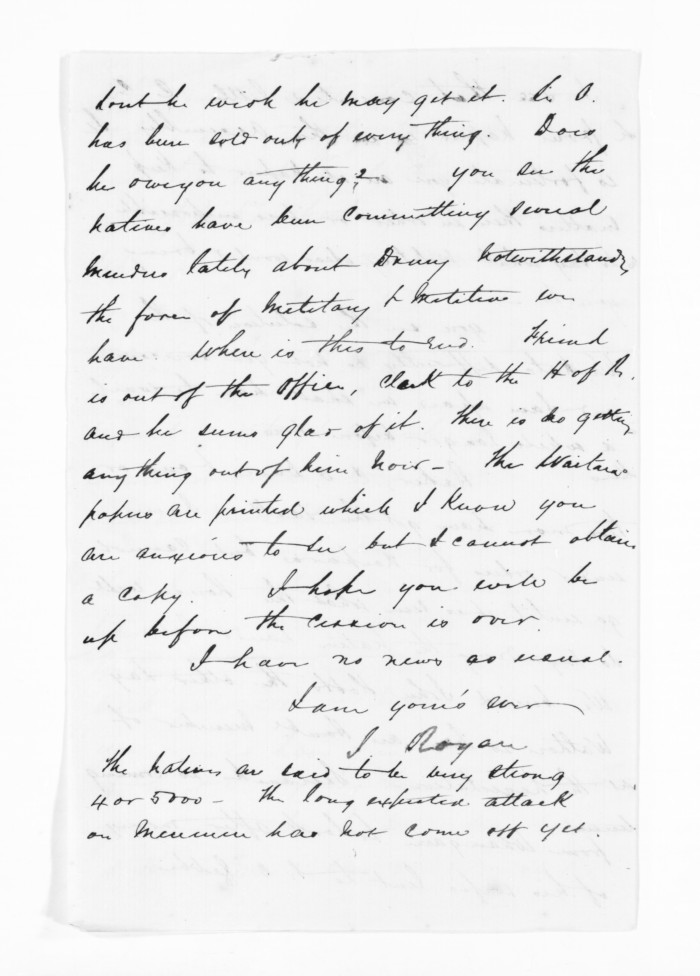 dont he wish he may get it. Li O.
has been sold out of everything. Does
he owe you anything? you see the
natives have been committing several
Murders lately about Drury notwithstandg
the force of Military & Militia we
have When is this to End. Friend
is out of the Office, Clerk to the H of R.
and he seems glad of it. There is no getting
anything out of him now - The Waitara
papers are printed which I know you
are anxious to see but I cannot obtain
a copy. I hope you will be
up before the Cession is over.
I have no news as usual.
I am your's ever
J Rogan
The natives are said to be very strong
4 or 5000 - The long expected attack
on Meremere has not come off yet.